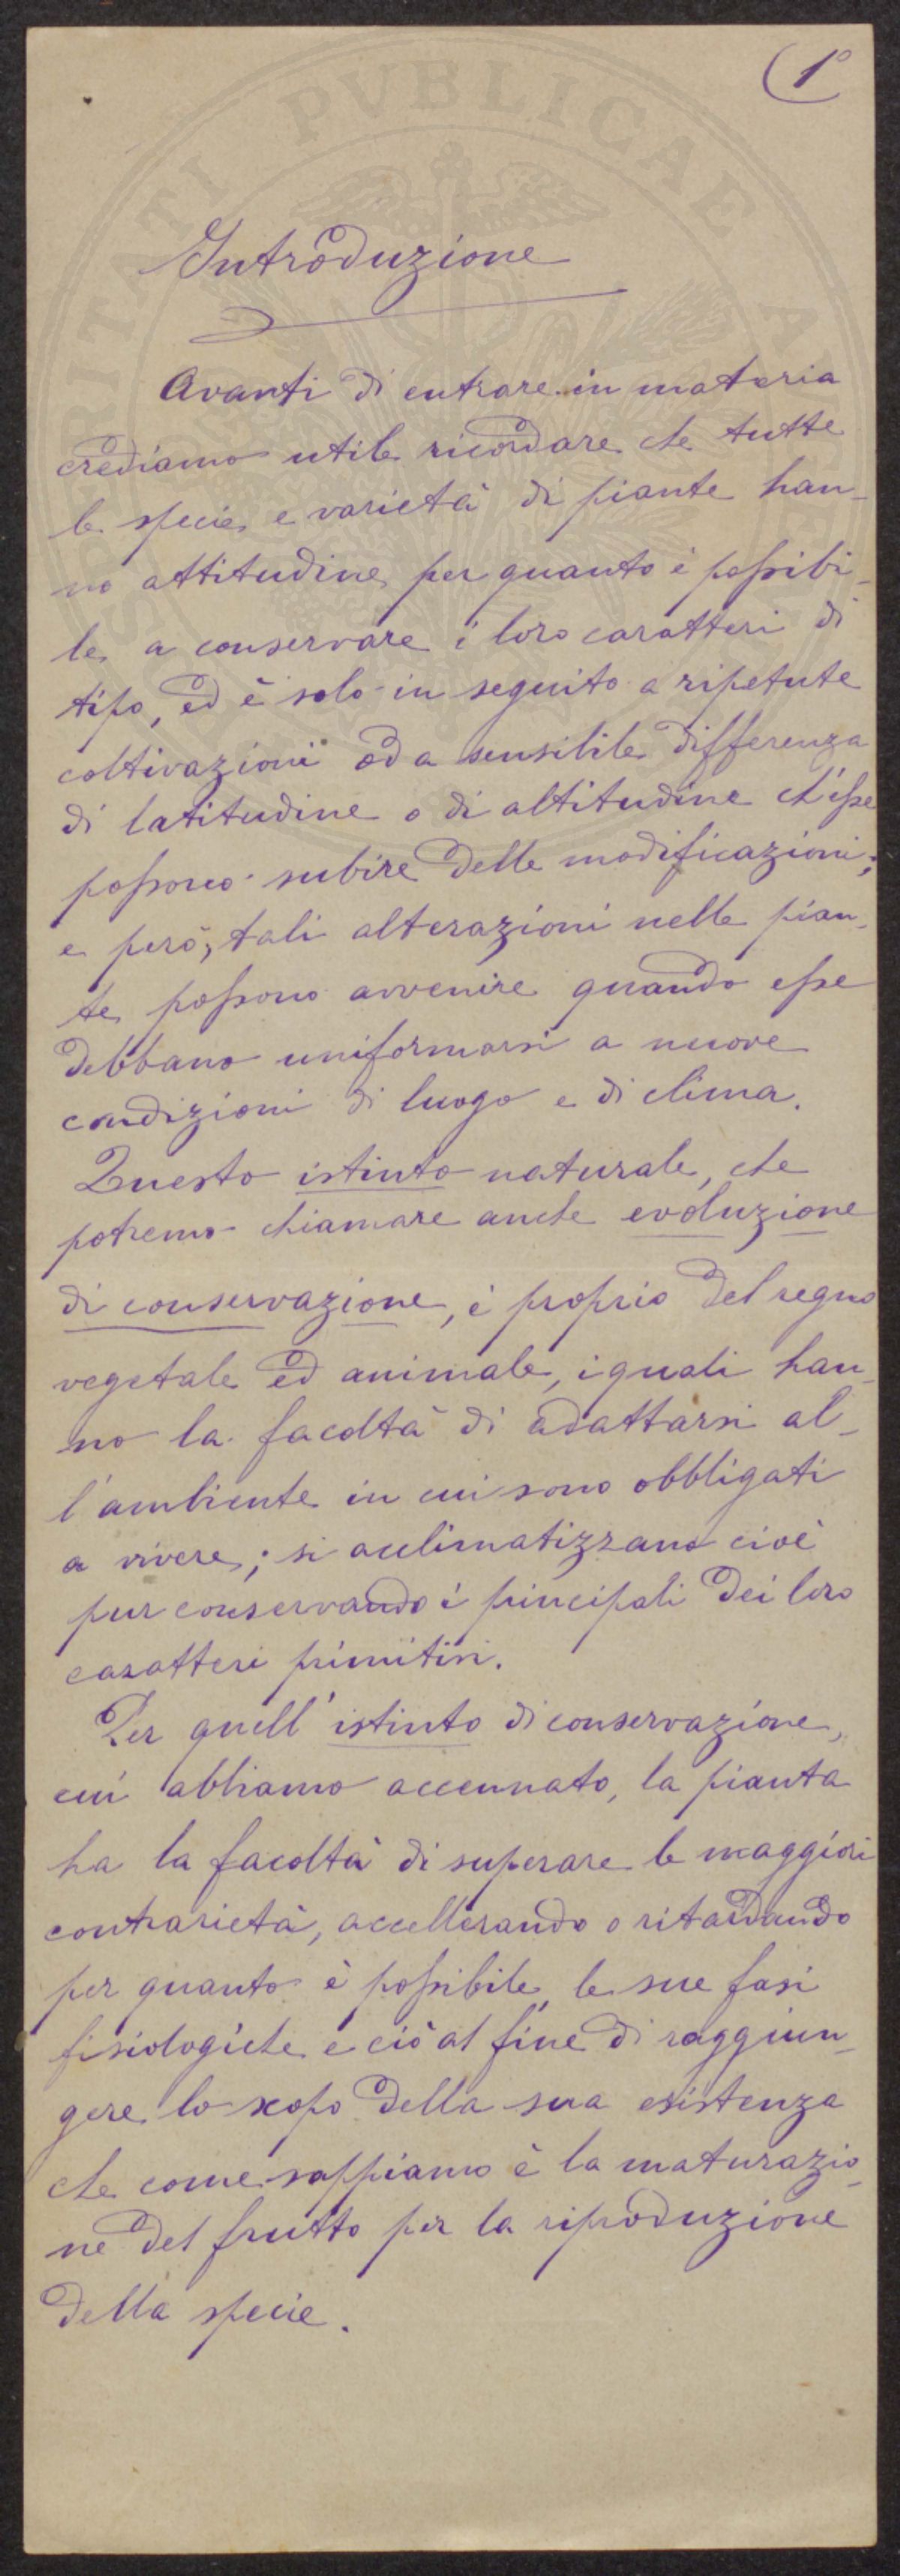 1°
Introduzione
Avanti di entrare in materia
crediamo utile ricordare che tutte
le specie e varietà di piante han-
no attitudine per quanto è possibi-
le a conservare i loro caratteri di
tipo, ed è solo in seguito a ripetute
coltivazioni od a sensibile differenza
di latitudine o di altitudine ch'esse
possono subire delle modificazioni;
e però, tali alterazioni nelle pian-
te possono avvenire quando esse
debbano uniformarsi a nuove
condizioni di luogo e di clima.
Questo istinto naturale, che
potremo chiamare anche evoluzione
di conservazione, è proprio del regno
vegetale ed animale, i quali han-
no la facoltà di adattarsi al-
l'ambiente in cui sono obbligati
a vivere; si acclimatizzano cioè
pur conservando i principali dei loro
caratteri primitivi.
Per quell'istinto di conservazione,
cui abbiamo accennato, la pianta
ha la facoltà di superare le maggiori
contrarietà, accellerando o ritardando
per quanto è possibile, le sue fasi
fisiologiche e ciò al fine di raggiun-
gere lo scopo della sua esistenza
che come sappiamo è la maturazio-
ne del frutto per la riproduzione
della specie.